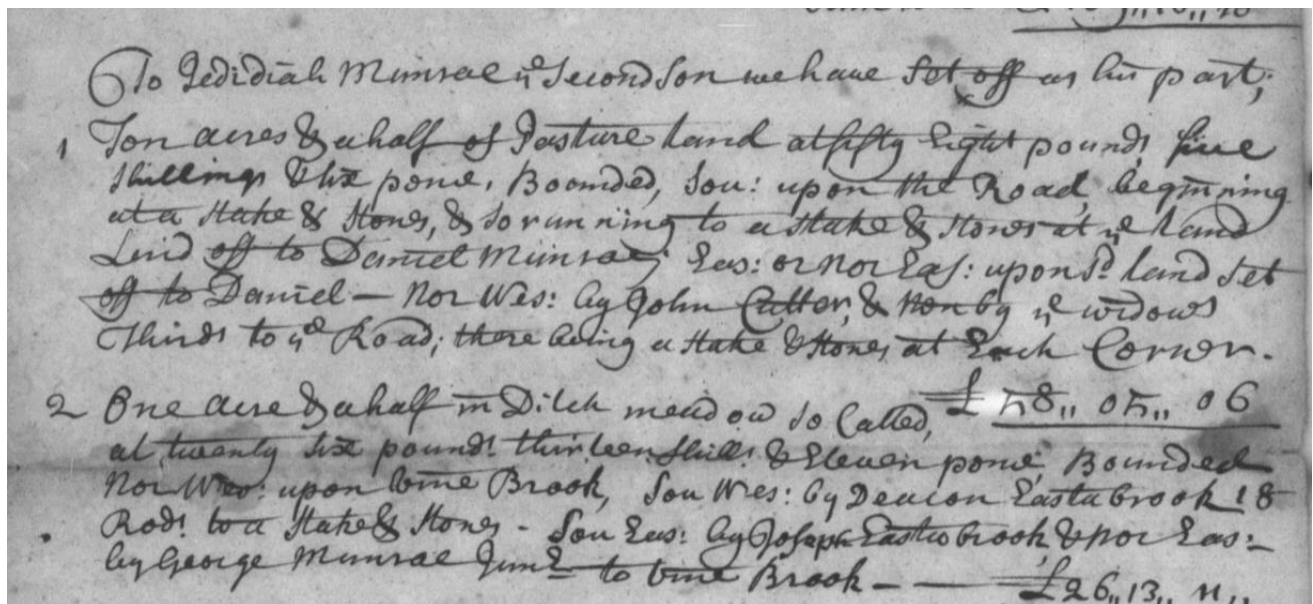 To Jedidiah Munroe ye Second Son we have Set off as his part;
1 Ten acres & a half of Pasture Land at fifty Eight pounds five
Shillings & six pence, Bounded, Sou: upon the Road, beginning
at a Stake & Stones, & so running to a Stake & Stones at ye Land
off to Daniel Munroe; Eas: or Nor Eas: upon sd land Set
off to Daniel — Nor Wes: by John Cutter, & by ye widows
Thirds to ye Road; there being a Stake & Stones at Each Corner.
£ 58,, 05,, 06
2 One acre & a half in Ditch meadow so Called,
at twenty six pounds thirteen shills & Eleven pence Bounded
Nor Wes: upon vine Brook, Sou Wes: by Deacon Eastabrook 18
Rods to a Stake & Stones - Sou Eas: by Joseph Eastabrook & Nor Eas:
by George Munroe Junr to vine Brook — — £26,, 13,, 11,,